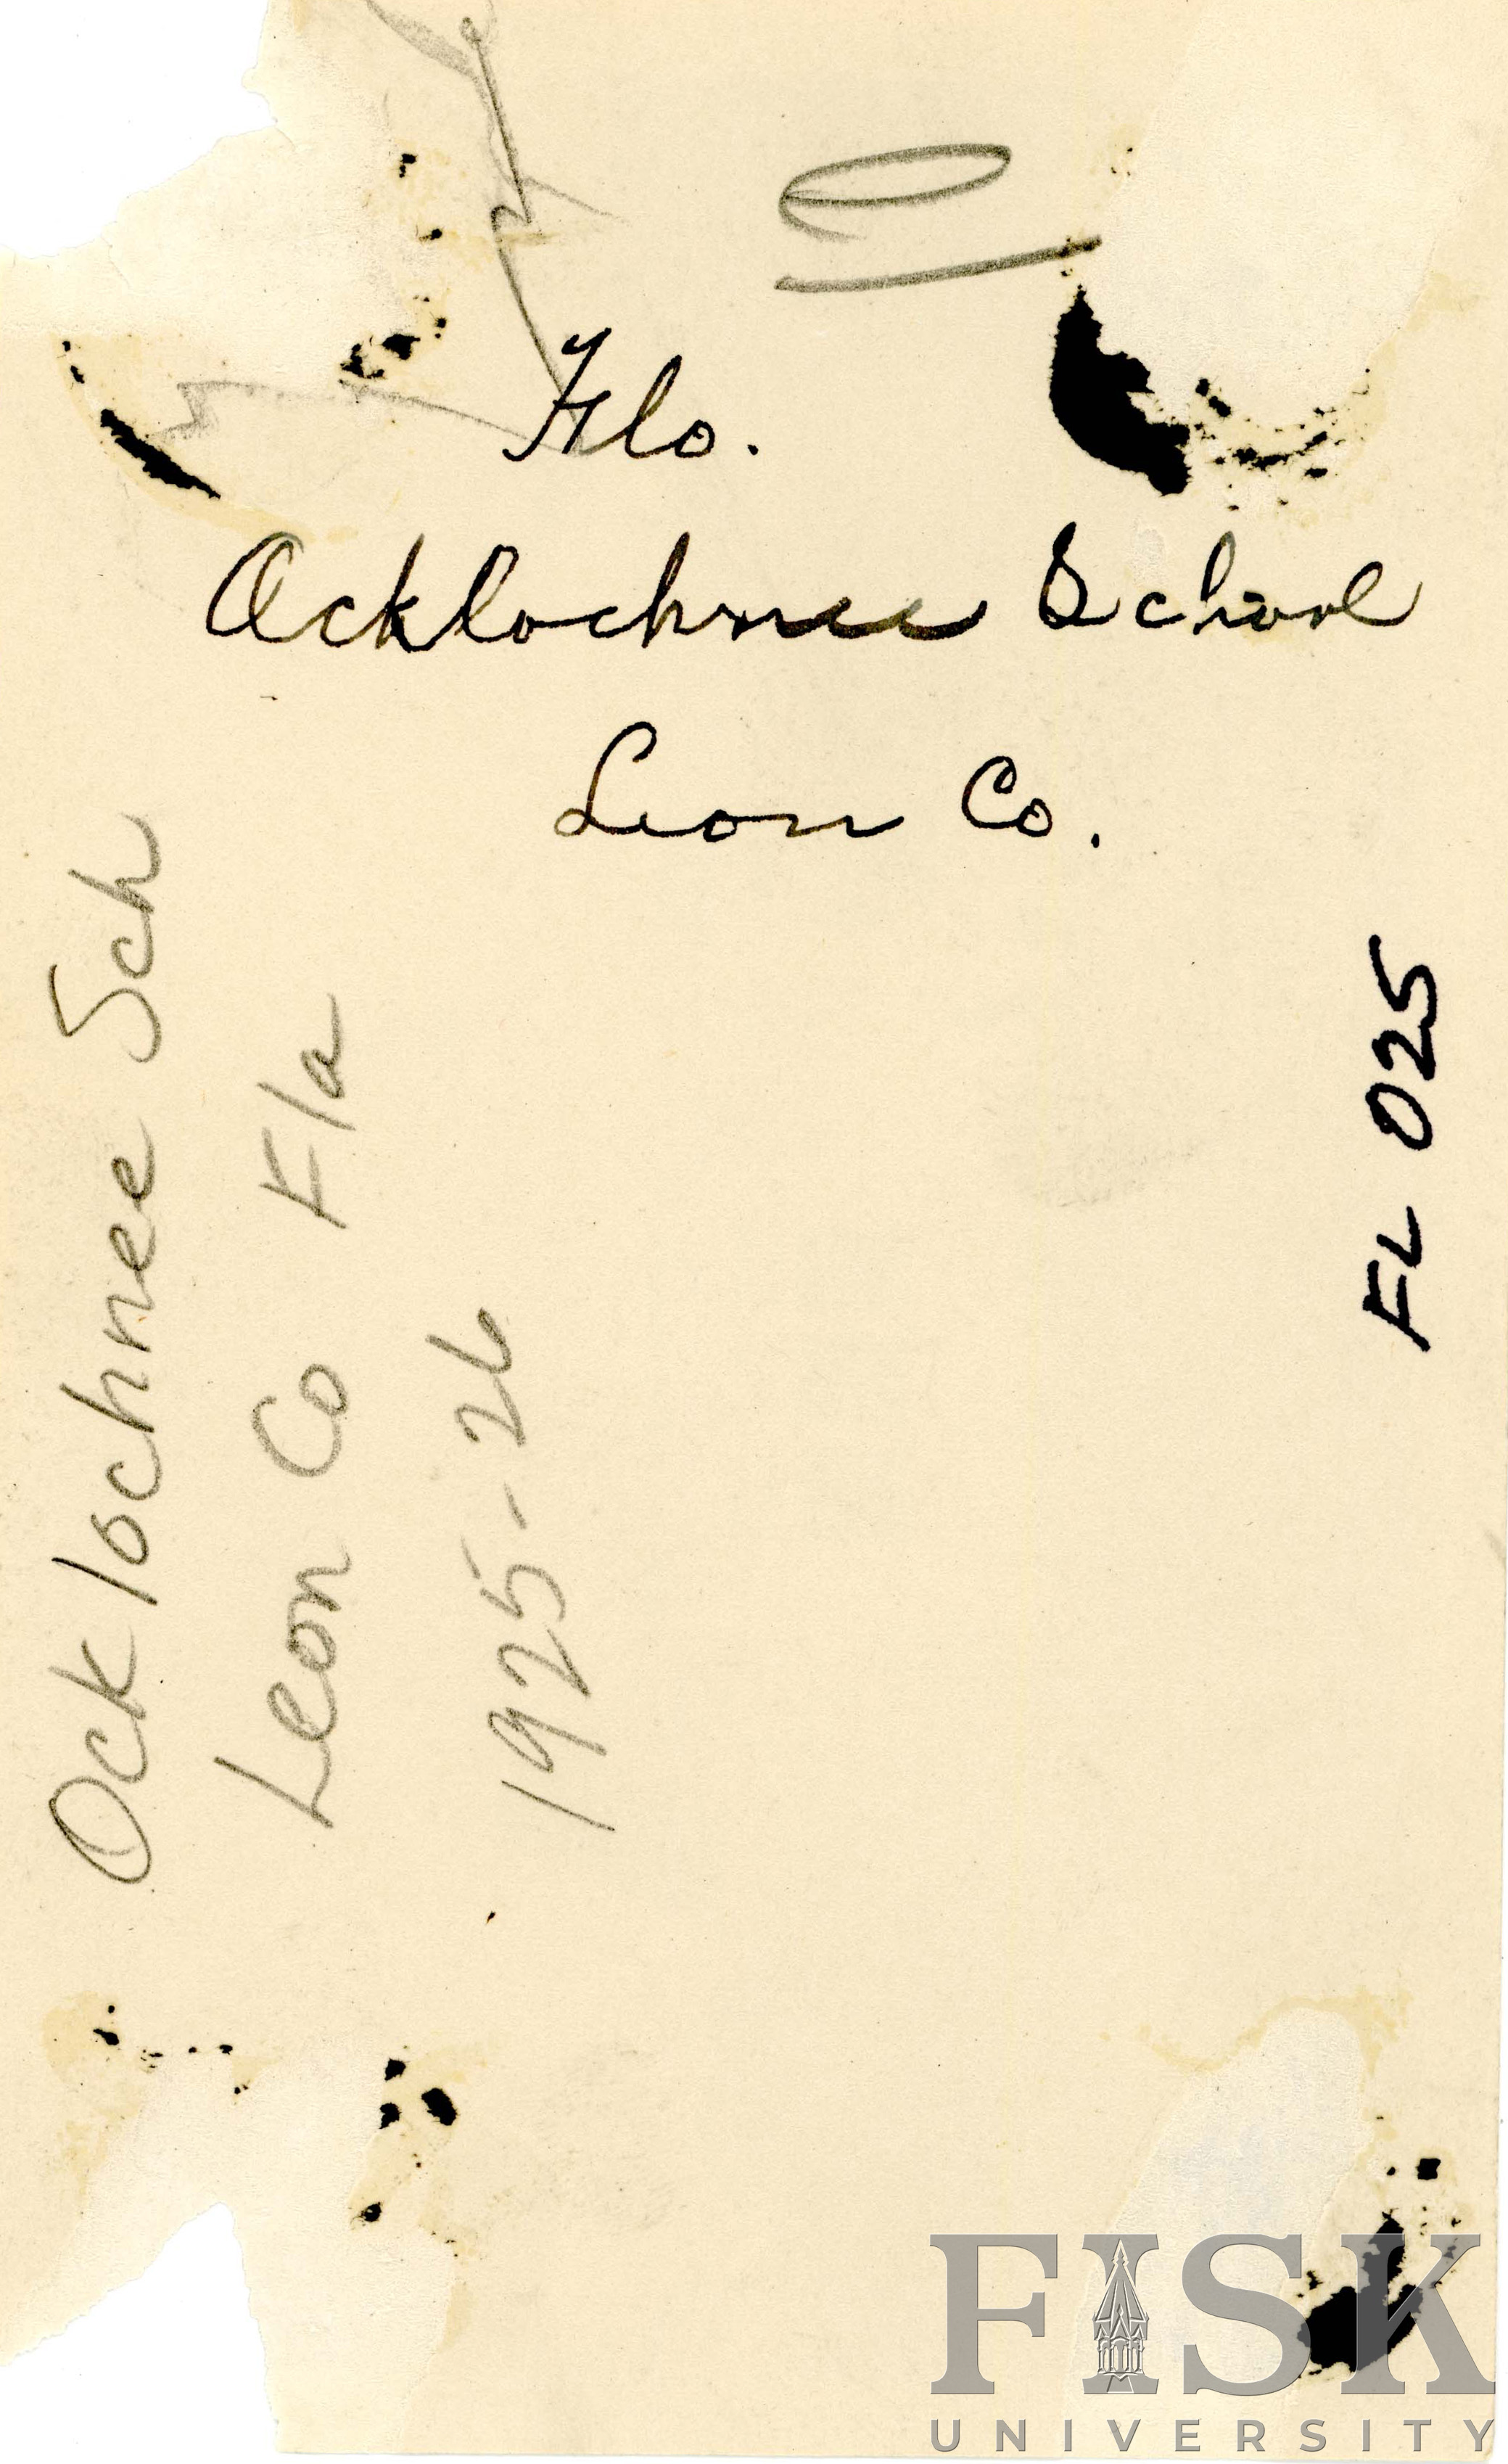 Flo.
Ocklochnee School
Leon Co.
Ocklochnee Sch
Leon Co Fla
1925-26
FL 025
FISK
UNIVERSITY